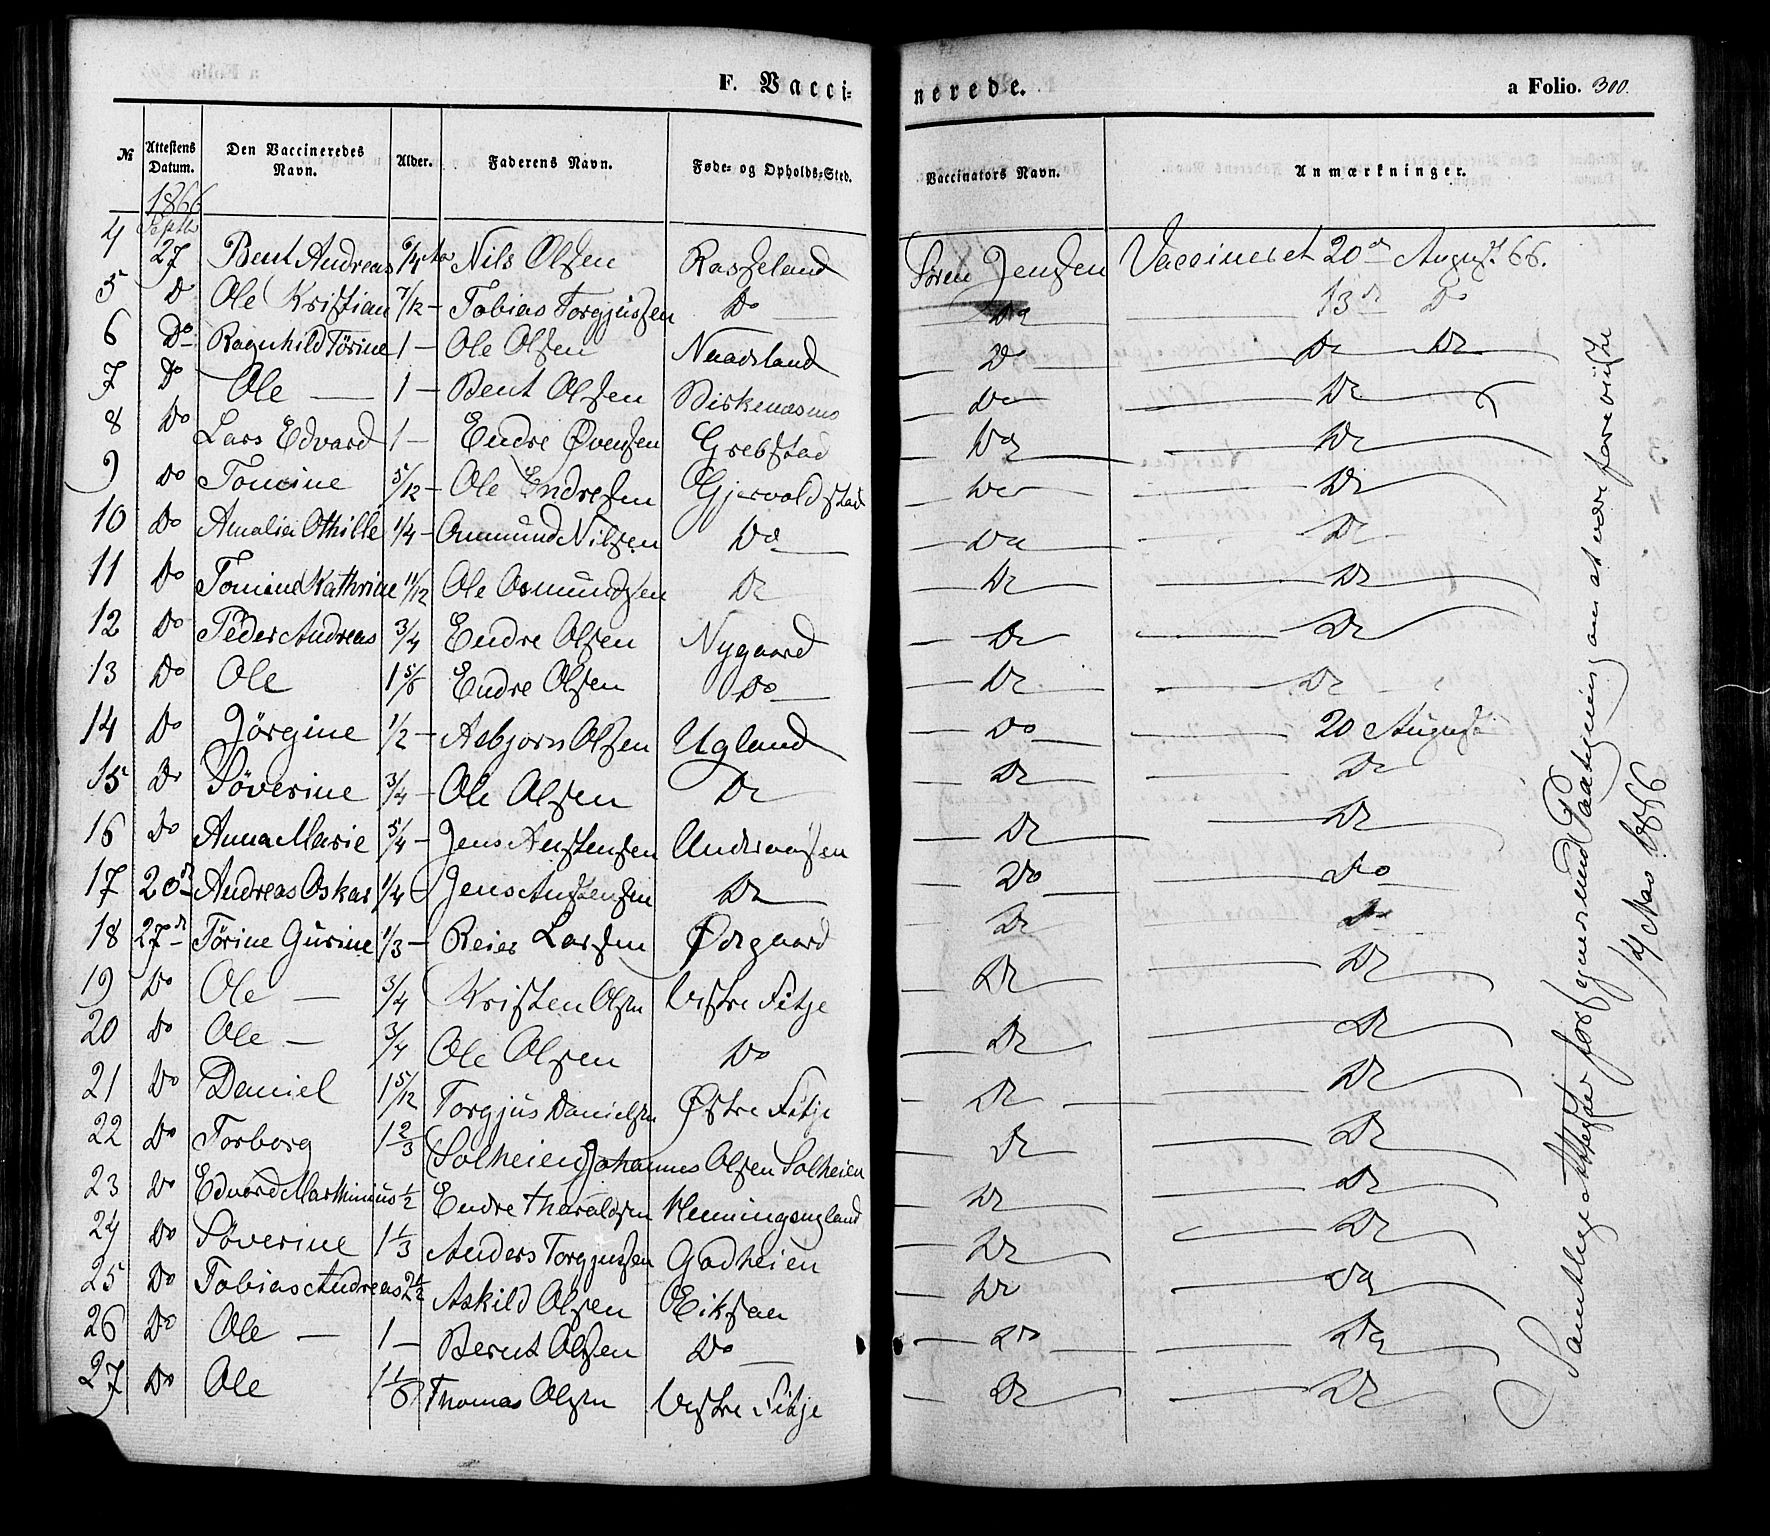 F. Vacci-nerede. a Folio. 300.
№ Attestens Datum. Den Vaccineredes Navn. Alder. Faderens Navn. Føde- og Opholds-Sted. Vaccinators Navn. Anmærkninger.
1866
Septbr
4 27 Bent Andreas 6/4 Aar Nils Olsen Rosseland Søren Jensen Vaccineret 20de August 66.
5 Do Ole Kristian 7/12 – Tobias Torgjussen Do Do 13de Do
6 Do Ragnhild Tørine 1 – Ole Olsen Naadland Do Do Do
7 Do Ole — 1 – Bent Olsen Birkenæsmo Do Do
8 Do Lars Edvard 1 – Endre Øvensen Grebstad Do Do
9 Do Tomine 5/12 – Ole Endresen Gjervoldstad Do Do
10 Do Amalia Othille 1/4 – Onmund Nilsen Do Do Do
11 Do Tomine Kathrine 11/12 Ole Osmundsen Do Do Do
12 Do Peder Andreas 3/4 Endre Olsen Nygaard Do Do
13 Do Ole 1 5/6 Endre Olsen Do Do Do
14 Do Jørgine 1/2 – Asbjørn Olsen Ugland Do 20 August
15 Do Søverine 3/4 – Ole Olsen Do Do Do
16 Do Anna Marie 5/4 – Jens Austensen Underaasen Do Do
17 20de Andreas Oskar 1/4 Jens Austensen Do Do Do
18 27de Tørine Gurine 1/3 – Reier Larsen Ødegaard Do Do
19 Do Ole — 3/4 Kristen Olsen Vestre Fitje Do Do
20 Do Ole — 3/4 Ole Olsen Do Do Do
21 Do Daniel 1 5/12 Torgjus Danielsen Østre Fitje Do Do
22 Do Torborg 1 2/3 (Solheien) Johannes Olsen Solheien Do Do
23 Do Edvard Marthinius 1/2 Endre Tharaldsen Henningsugland Do Do
24 Do Søverine 1 1/3 Anders Torgjussen Godheien Do Do
25 Do Tobias Andreas 2 1/2 Askild Olsen Eiksaa Do Do
26 Do Ole — 1 – Bernt Olsen Do Do Do
27 Do Ole 1 1/6 Thomas Olsen Vestre Fitje Do Do
Samtlige Attester forsynes med Paategning om at være foreviiste
14 Mai 1866